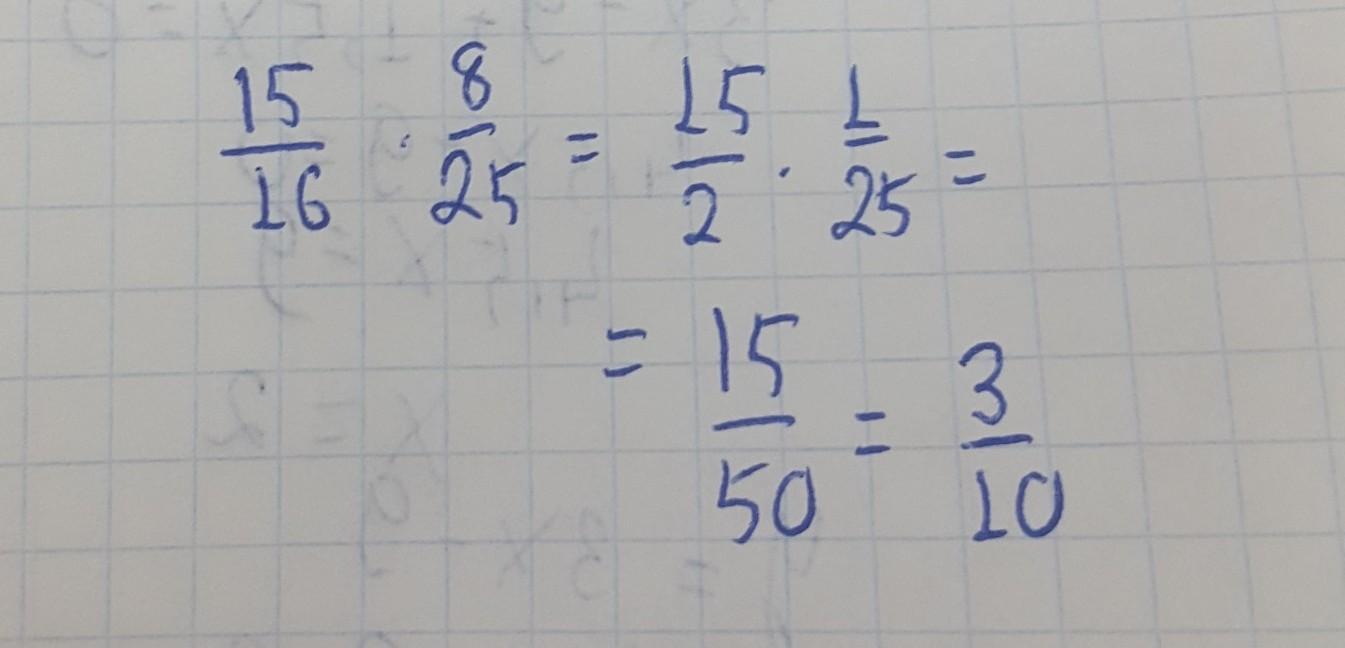 15/16 · 8/25 = 15/2 · 1/25 =
= 15/50 = 3/10